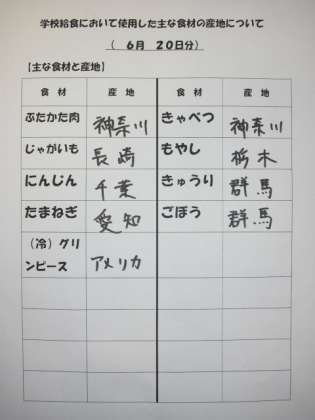 学校給食において使用した主な食材の産地について
（　６月　２０日分）
【主な食材と産地】
食　材　産　地　食　材　産　地
ぶたかた肉　神奈川　きゃべつ　神奈川
じゃがいも　長崎　もやし　栃木
にんじん　千葉　きゅうり　群馬
たまねぎ　愛知　ごぼう　群馬
（冷）グリ
ンピース　アメリカ